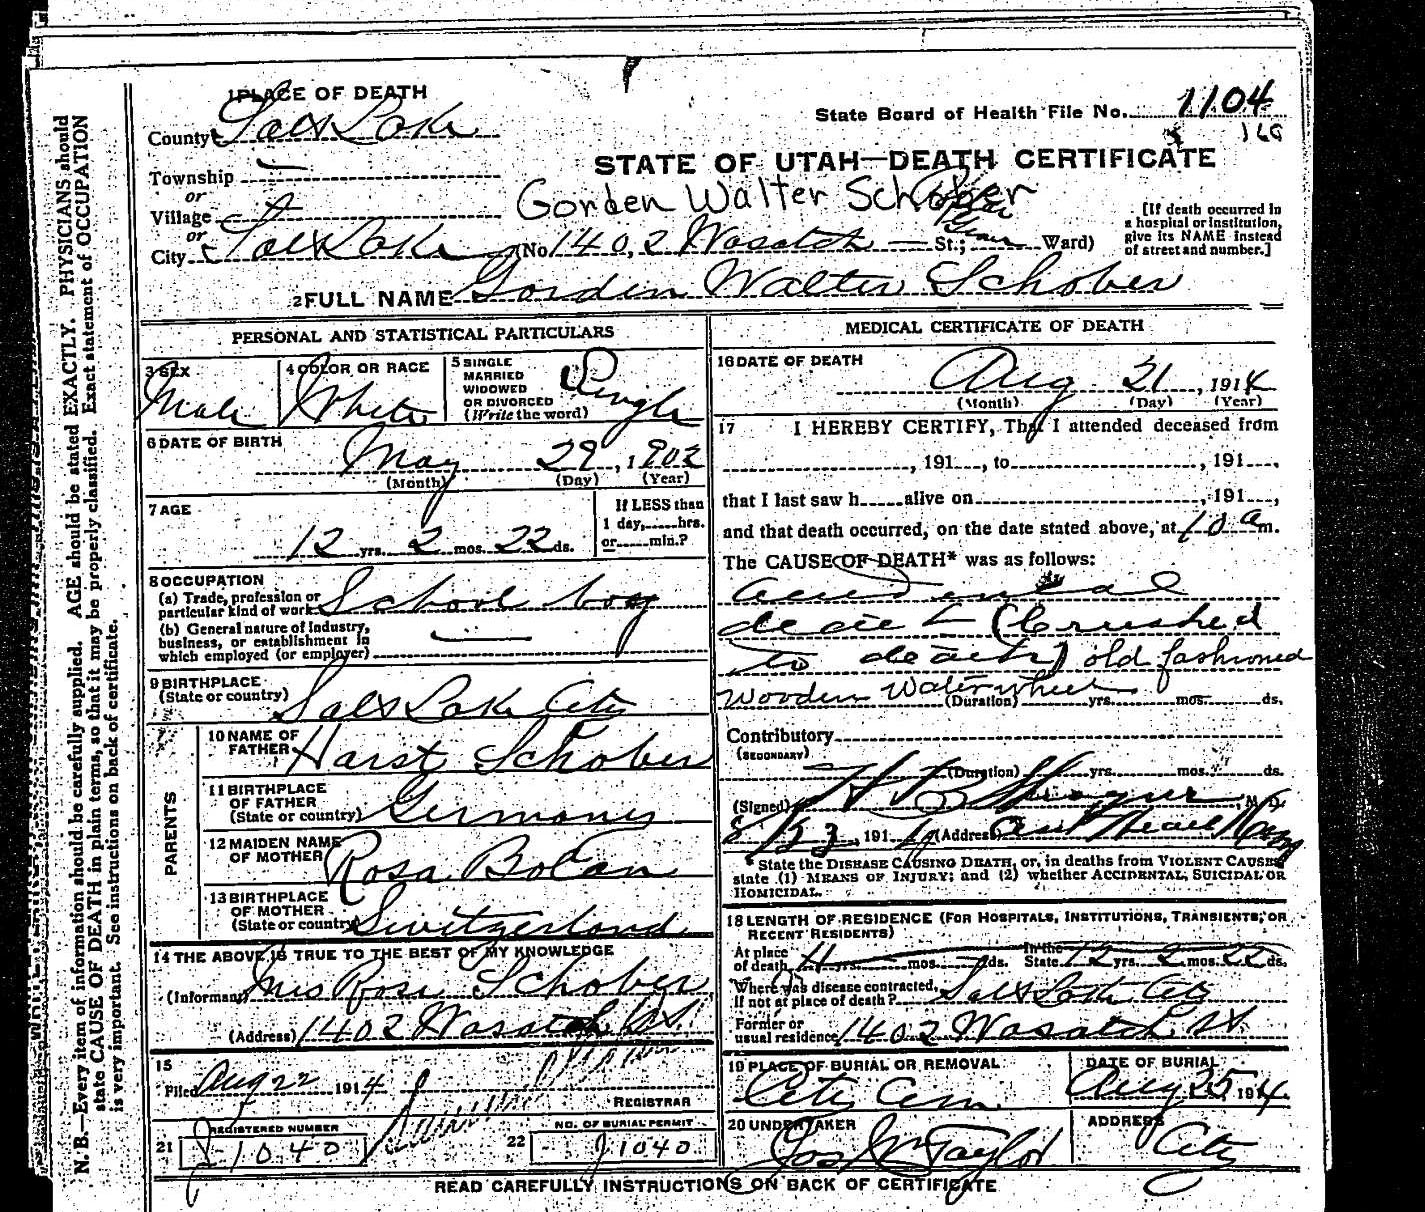 1 PLACE OF DEATH
County Salt Lake
Township
or
Village
or
City Salt Lake (No. 1402 Wasatch St.; Ward)
State Board of Health File No. 1104
160
STATE OF UTAH—DEATH CERTIFICATE
Gorden Walter Schober
[If death occurred in
a hospital or institution,
give its NAME instead
of street and number.]
2 FULL NAME Gorden Walter Schober
PERSONAL AND STATISTICAL PARTICULARS
3 SEX
Male
4 COLOR OR RACE
White
5 SINGLE
MARRIED
WIDOWED
OR DIVORCED
(Write the word)
Single
6 DATE OF BIRTH
May 29, 1902
(Month) (Day) (Year)
7 AGE
12 yrs. 2 mos. 22 ds.
If LESS than
1 day,......hrs.
or......min.?
8 OCCUPATION
(a) Trade, profession or
particular kind of work School boy
(b) General nature of industry,
business, or establishment in
which employed (or employer)
9 BIRTHPLACE
(State or country) Salt Lake City
PARENTS
10 NAME OF
FATHER Harst Schober
11 BIRTHPLACE
OF FATHER
(State or country) Germany
12 MAIDEN NAME
OF MOTHER Rosa Bolan
13 BIRTHPLACE
OF MOTHER
(State or country) Switzerland
14 THE ABOVE IS TRUE TO THE BEST OF MY KNOWLEDGE
(Informant) Mrs Rosa Schober
(Address) 1402 Wasatch St.
15
Filed Aug 22 1914
REGISTRAR
REGISTERED NUMBER
21 J 1040
NO. OF BURIAL PERMIT
22 J 1040
MEDICAL CERTIFICATE OF DEATH
16 DATE OF DEATH
Aug 21, 1914
(Month) (Day) (Year)
17 I HEREBY CERTIFY, That I attended deceased from
, 191 , to , 191 ,
that I last saw h alive on , 191 ,
and that death occurred, on the date stated above, at 10 a m.
The CAUSE OF DEATH* was as follows:
accidental
death (Crushed
to death) old fashioned
Wooden Waterwheel
(Duration) yrs. mos. ds.
Contributory
(SECONDARY)
(Duration) yrs. mos. ds.
(Signed) H T Sprague, M.D.
8/23, 1914 (Address)
*State the DISEASE CAUSING DEATH, or, in deaths from VIOLENT CAUSES
state (1) MEANS OF INJURY; and (2) whether ACCIDENTAL, SUICIDAL OR
HOMICIDAL.
18 LENGTH OF RESIDENCE (FOR HOSPITALS, INSTITUTIONS, TRANSIENTS, OR
RECENT RESIDENTS)
At place
of death yrs. mos. ds. In the State 12 yrs. 2 mos. 22 ds.
Where was disease contracted,
if not at place of death? Salt Lake City
Former or
usual residence 1402 Wasatch St.
19 PLACE OF BURIAL OR REMOVAL
City Cem
DATE OF BURIAL
Aug 25 1914
20 UNDERTAKER
Jos Wm Taylor
ADDRESS
City
READ CAREFULLY INSTRUCTIONS ON BACK OF CERTIFICATE
N. B.—Every item of information should be carefully supplied. AGE should be stated EXACTLY. PHYSICIANS should
state CAUSE OF DEATH in plain terms, so that it may be properly classified. Exact statement of OCCUPATION
is very important. See instructions on back of certificate.